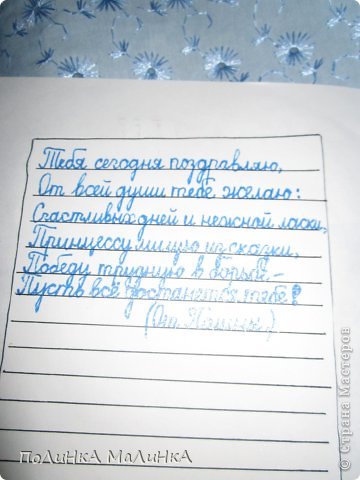 Тебя сегодня поздравляю,
От всей души тебе желаю:
Счастливых дней и нежной ласки,
Принцессу милую из сказки,
Победу трудную в борьбе –
Пусть всё достанется тебе!
(От Полины.)
ПоЛиНкА МаЛиНкА
© Страна Мастеров